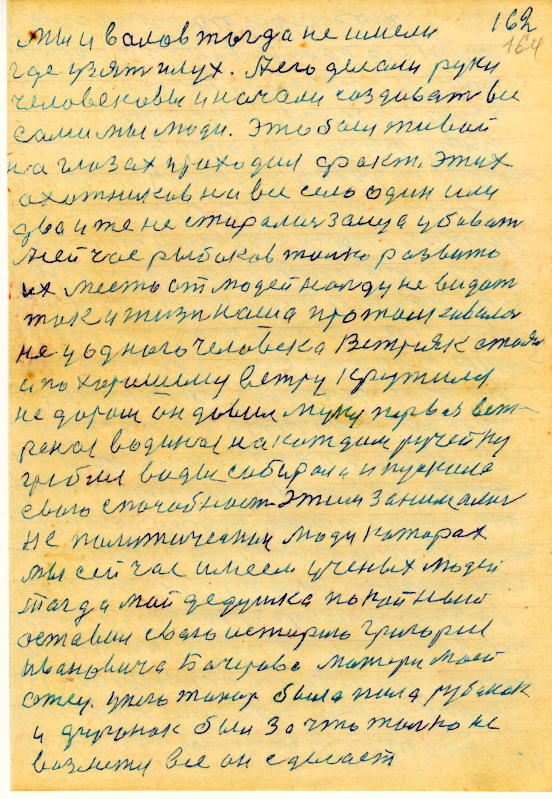 162
164
мы и валов тогда не имели
где узят плух. Лего делали руки
человековы и начали создават все
сами мы люди. Это был живой
на глазах проходил факт. Этих
охотников на все село один или
два и те не старались зайца убават
сей час рыбаков только развито
их место от людей не видат
так и жизн наша
не у одного человека Ветряк стоял
и по хорошему ветру крутился
не дорой он довил муку первая вет-
реная водяная на каждом ручейку
гребля воды собирала и пускала
свою способност Этим занимались
не политически люди которах
мы сей час имеем ученых людей
Тагда мой дедушка покойный
оставил свою историю Григория
Ивановича матери моей
отец. у него топор была пила рубанок
и был За что только не
возмети все он сделает